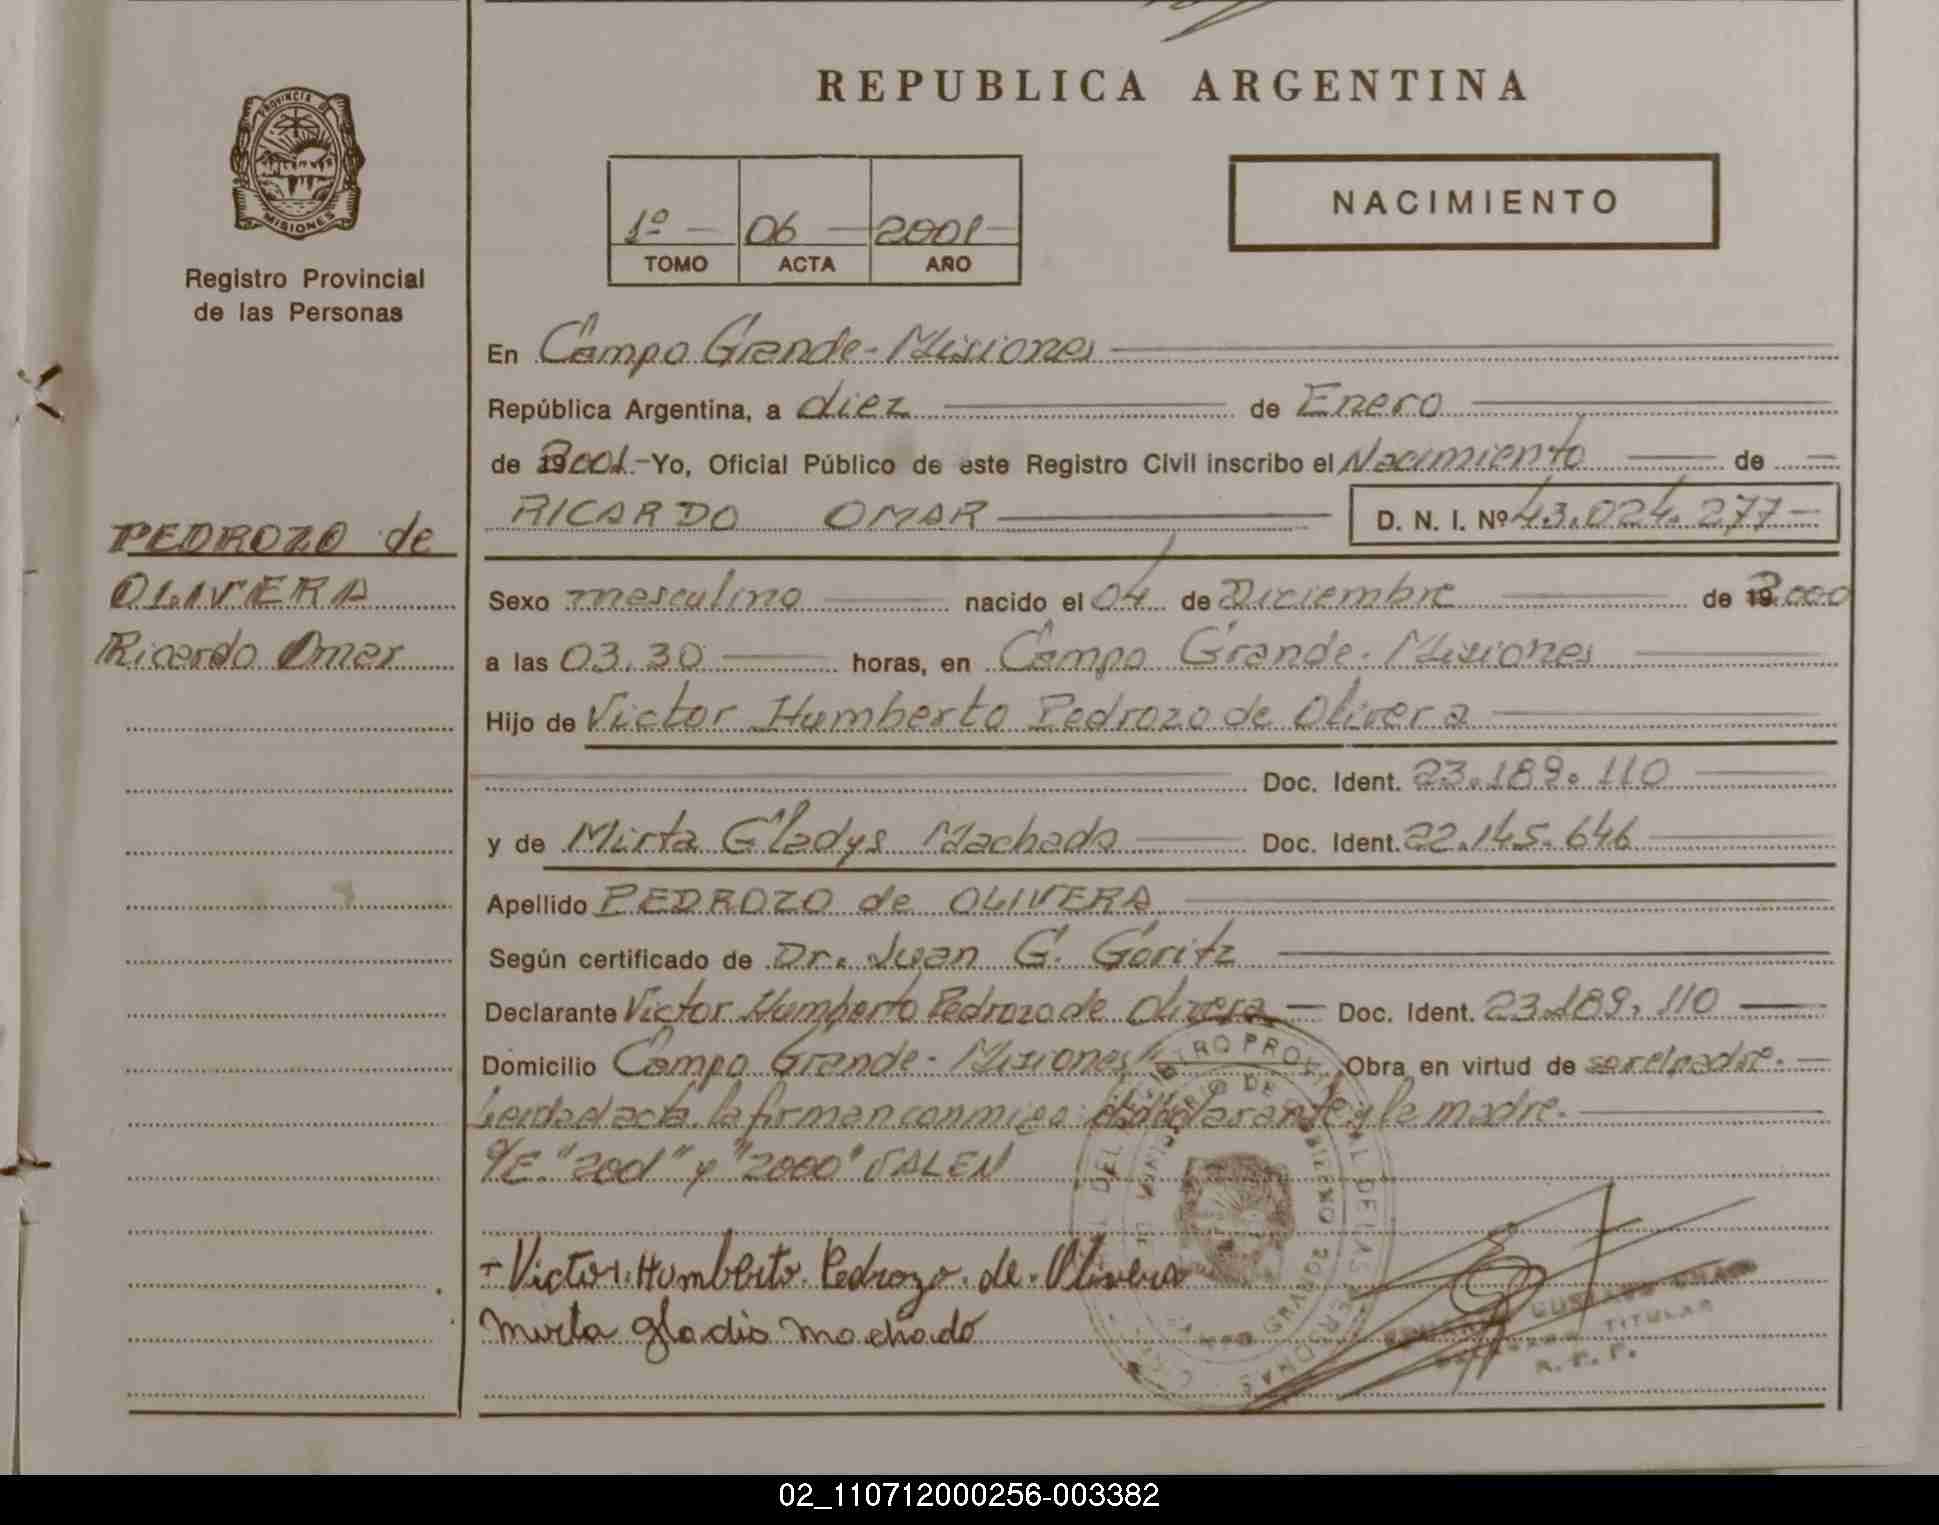 PROVINCIA DE
MISIONES
Registro Provincial
de las Personas
PEDROZO de
OLIVERA
Ricardo Omar
REPUBLICA ARGENTINA
1º - 06 - 2001 -
TOMO ACTA AÑO
NACIMIENTO
En Campo Grande - Misiones
República Argentina, a diez de Enero
de 2001.- Yo, Oficial Público de este Registro Civil inscribo el Nacimiento de
RICARDO OMAR D. N. I. Nº 43.024.277-
Sexo masculino nacido el 04 de Diciembre de 2000
a las 03.30 horas, en Campo Grande - Misiones
Hijo de Victor Humberto Pedrozo de Olivera
Doc. Ident. 23.189.110
y de Mirta Gladys Machado Doc. Ident. 22.145.646
Apellido PEDROZO de OLIVERA
Según certificado de Dr. Juan G. Goritz
Declarante Victor Humberto Pedrozo de Olivera - Doc. Ident. 23.189.110
Domicilio Campo Grande - Misiones Obra en virtud de ser el padre.-
Leida el acta, la firman conmigo: el declarante y la madre.
S/E. "2001" y "2000" VALEN
- Victor. Humberto. Pedrozo. de. Olivera
Mirta gladis machado
TITULAR
R. P. P.
02_110712000256-003382